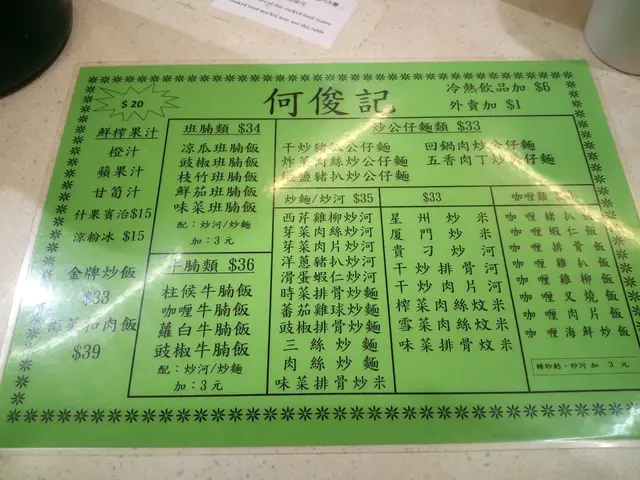 cooked food market may use this table
冷熱飲品加 $6
外賣加 $1
何俊記
$ 20
鮮榨果汁
橙汁
蘋果汁
甘筍汁
什果賓治$15
涼粉冰 $15
金牌炒飯
$33
扣肉飯
$39
班腩類 $34
凉瓜班腩飯
豉椒班腩飯
枝竹班腩飯
鮮茄班腩飯
味菜班腩飯
配：炒河/炒麵
加：3 元
牛腩類 $36
柱候牛腩飯
咖喱牛腩飯
蘿白牛腩飯
豉椒牛腩飯
配：炒河/炒麵
加：3 元
炒公仔麵類 $33
干炒豬扒公仔麵
回鍋肉炒公仔麵
炸菜肉絲炒公仔麵
五香肉丁炒公仔麵
鹽豬扒炒公仔麵
炒麵/炒河 $35
西芹雞柳炒河
芽菜肉絲炒河
芽菜肉片炒河
洋蔥豬扒炒河
滑蛋蝦仁炒河
時菜排骨炒麵
蕃茄雞球炒麵
豉椒排骨炒麵
三絲炒麵
肉絲炒麵
味菜排骨炒米
$33
星州炒米
厦門炒米
貴刁炒河
干炒排骨河
干炒肉片河
榨菜肉絲炆米
雪菜肉絲炆米
味菜排骨炆米
咖喱類
咖喱豬扒飯
咖喱蝦仁飯
咖喱排骨飯
咖喱雞扒飯
咖喱雞柳飯
咖喱叉燒飯
咖喱肉片飯
咖喱海鮮炒飯
轉炒麵，炒河 加 3 元